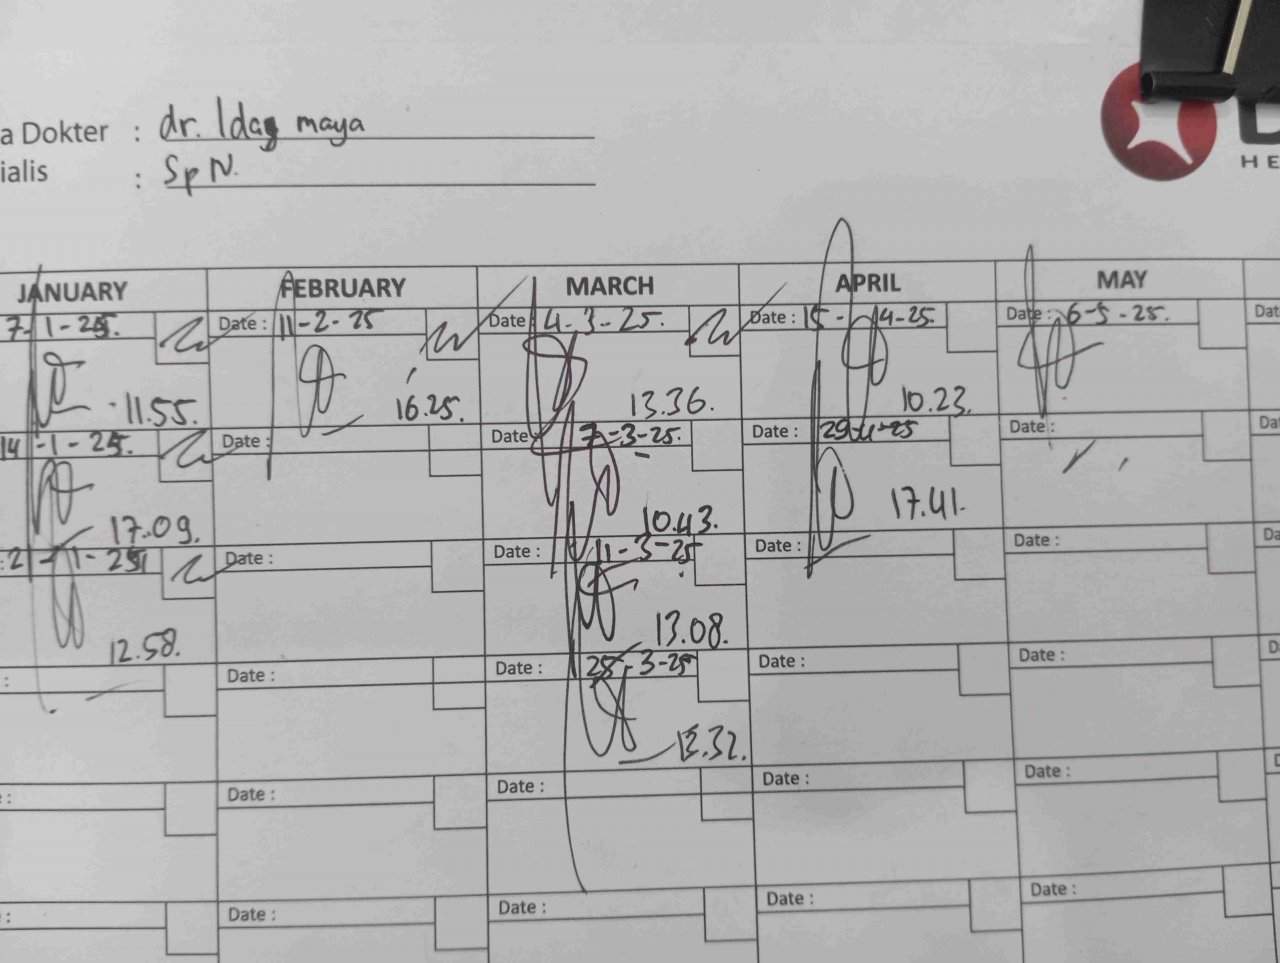 a Dokter : dr. Idag maya
ialis : Sp N.
HE
JANUARY FEBRUARY MARCH APRIL MAY
7-1-25. Date : 11-2-25 Date 4-3-25. Date : 15-4-25. Date : 6-5-25. Dat
11.55. 16.25. 13.36. 10.23.
14-1-25. Date : Date 7-3-25. Date : 29-4-25 Date : Dat
17.09. 10.43. 17.41.
: 21-1-25 Date : Date : 11-3-25 Date : Date : Da
12.58. 13.08.
: Date : Date : 25-3-25 Date : Date : D
13.32.
: Date : Date : Date : Date : D
: Date : Date : Date : Date :